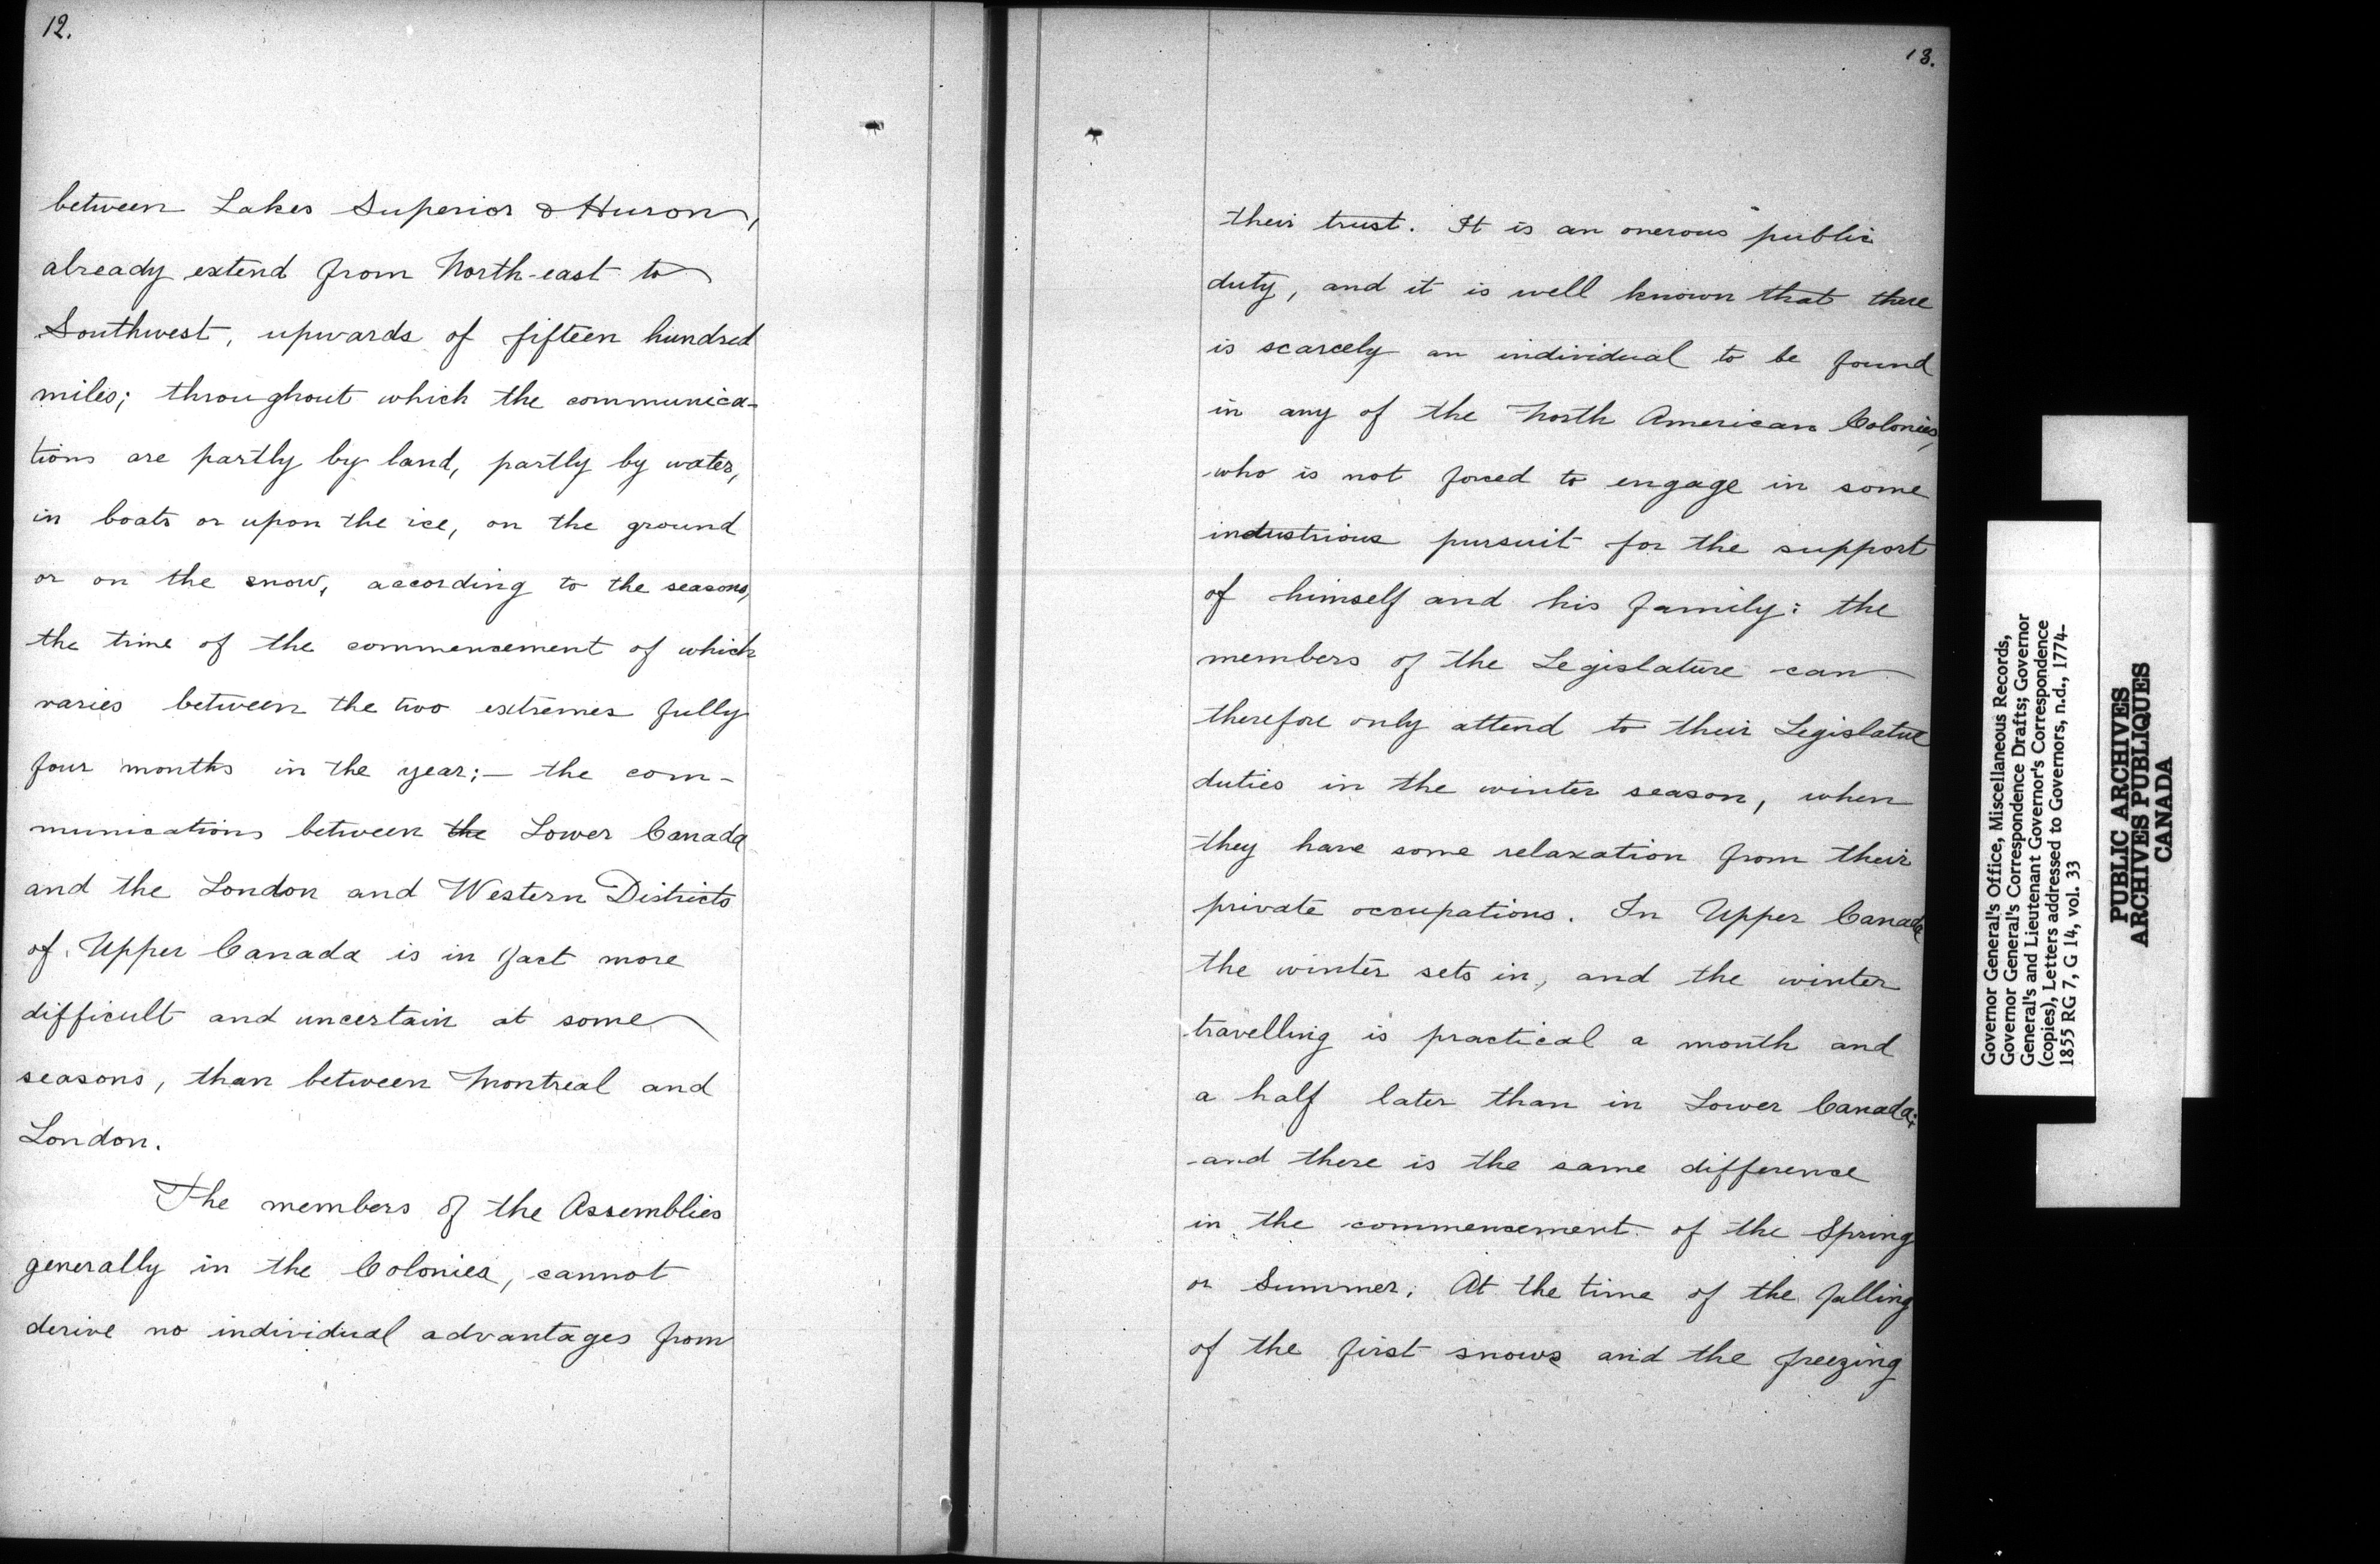 12.
between Lakes Superior & Huron,
already extend from North-east to
Southwest, upwards of fifteen hundred
miles; throughout which the communica-
tions are partly by land, partly by water,
in boats or upon the ice, on the ground
or on the snow, according to the seasons,
the time of the commencement of which
varies between the two extremes fully
four months in the year;— the com-
munications between the Lower Canada
and the London and Western Districts
of Upper Canada is in fact more
difficult and uncertain at some
seasons, than between Montreal and
London.
The members of the Assemblies
generally in the Colonies, cannot
derive no individual advantages from
13.
their trust. It is an onerous public
duty, and it is well known that there
is scarcely an individual to be found
in any of the North American Colonies,
who is not forced to engage in some
industrious pursuit for the support
of himself and his family: the
members of the Legislature can
therefore only attend to their Legislative
duties in the winter season, when
they have some relaxation from their
private occupations. In Upper Canada
the winter sets in, and the winter
travelling is practical a month and
a half later than in Lower Canada;
and there is the same difference
in the commencement of the Spring
or Summer. At the time of the falling
of the first snows and the freezing
Governor General's Office, Miscellaneous Records,
Governor General's Correspondence Drafts; Governor
General's and Lieutenant Governor's Correspondence
(copies), Letters addressed to Governors, n.d., 1774-
1855 RG 7, G 14, vol. 33
PUBLIC ARCHIVES
ARCHIVES PUBLIQUES
CANADA